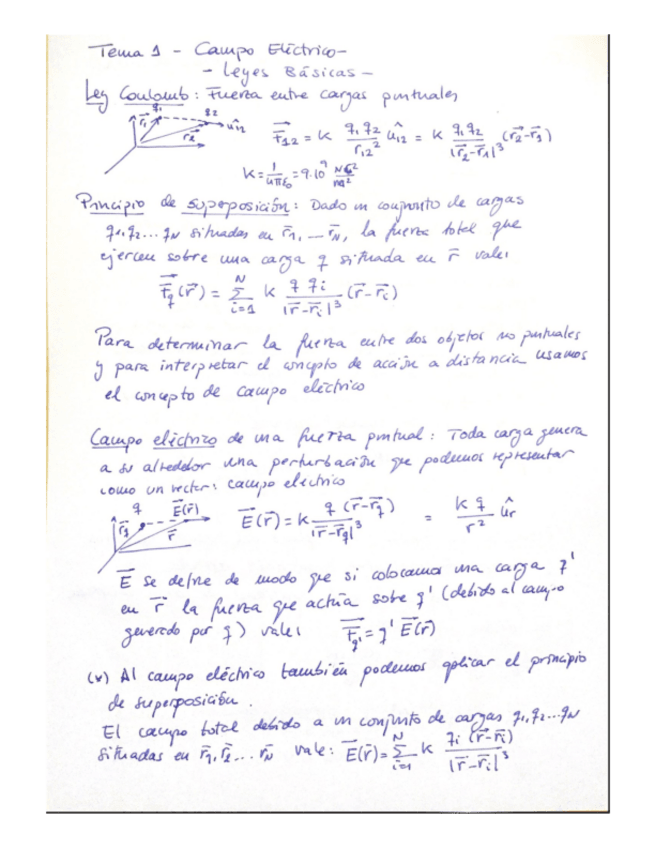 Tema 1 - Campo Eléctrico -
- Leyes Básicas -
Ley Coulomb: Fuerza entre cargas puntuales
q₁ q₂ r⃗₁ r⃗₂ û₁₂
F⃗₁₂ = K q₁q₂/r₁₂² û₁₂ = K q₁q₂/|r⃗₂-r⃗₁|³ (r⃗₂-r⃗₁)
K = 1/4πε₀ = 9·10⁹ NC²/m²
Principio de superposición: Dado un conjunto de cargas
q₁,q₂...qN situadas en r̄₁, ... r̄N, la fuerza total que
ejercen sobre una carga q situada en r̄ vale:
F⃗q(r⃗) = Σ(i=1, N) K q qi/|r̄-r̄i|³ (r̄-r̄i)
Para determinar la fuerza entre dos objetos no puntuales
y para interpretar el concepto de acción a distancia usamos
el concepto de campo eléctrico
Campo eléctrico de una fuerza puntual: Toda carga genera
a su alrededor una perturbación que podemos representar
como un vector: campo electrico
q E⃗(r̄) r̄q r̄
E⃗(r̄) = K q (r̄-r̄q)/|r̄-r̄q|³ = K q/r² ûr
E⃗ se define de modo que si colocamos una carga q'
en r⃗ la fuerza que actúa sobre q' (debido al campo
generado por q) vale: F⃗q' = q' E⃗(r̄)
(v) Al campo eléctrico también podemos aplicar el principio
de superposición.
El campo total debido a un conjunto de cargas q₁,q₂...qN
situadas en r̄₁, r̄₂... r̄N vale: E⃗(r̄) = Σ(i=1, N) K qi (r̄-r̄i)/|r̄-r̄i|³